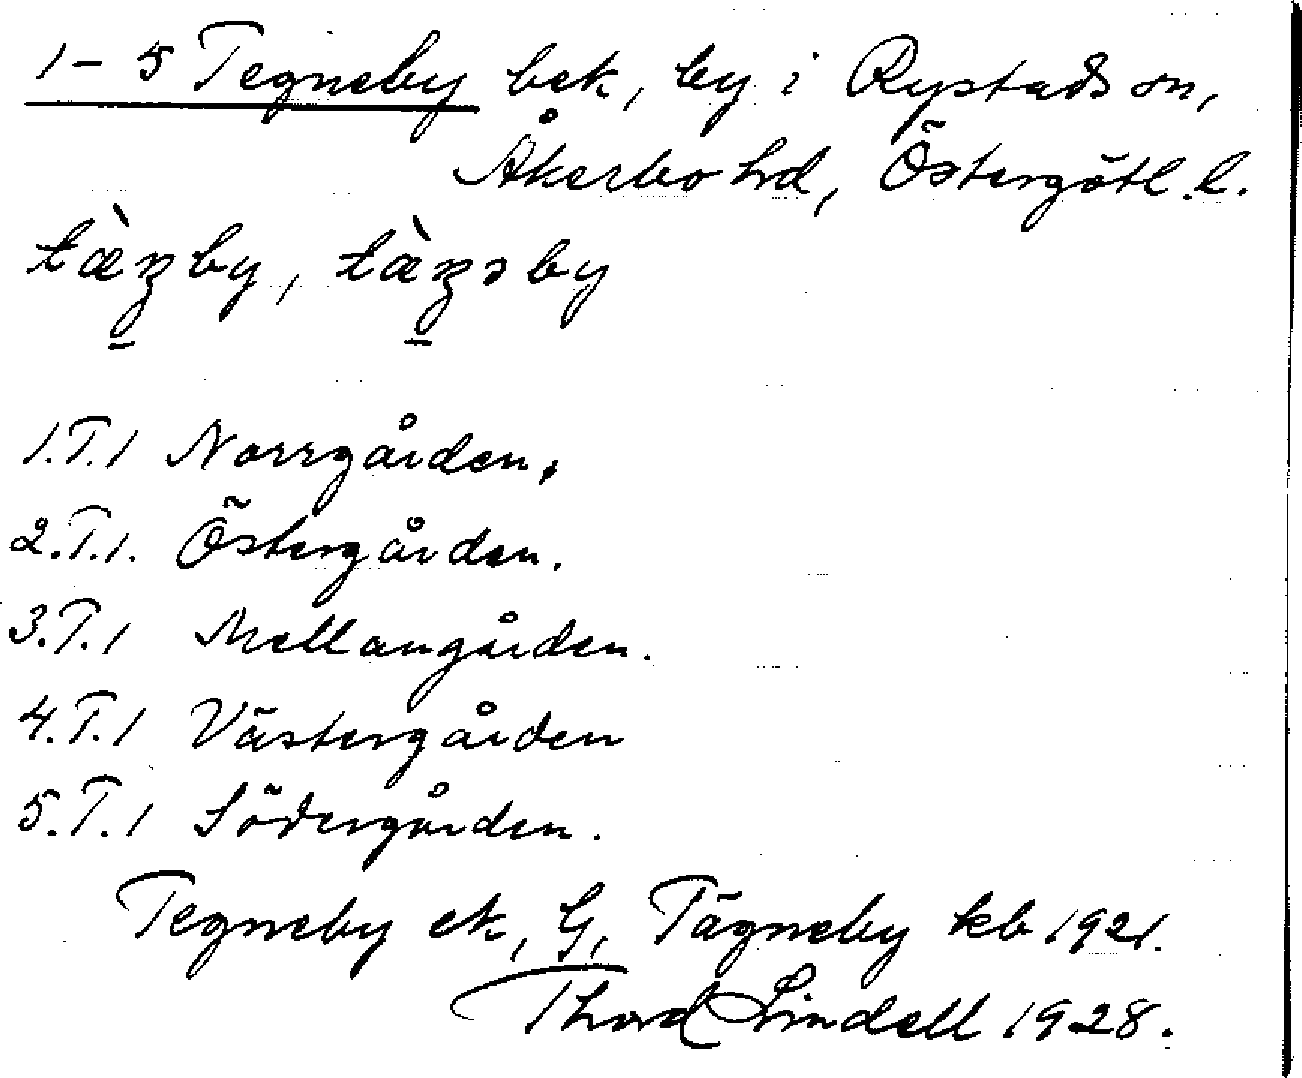 1-5 Tegneby bek, by i Rystads sn,
Åkerbo hd, Östergötl. l.
tæ̀ŋby, tæ̀ŋəby
1.T.1 Norrgården,
2.T.1. Östergården.
3.T.1 Mellangården.
4.T.1 Västergården
5.T.1 Södergården.
Tegneby ek, G, Tägneby kb 1921.
Thord Lindell 1928.